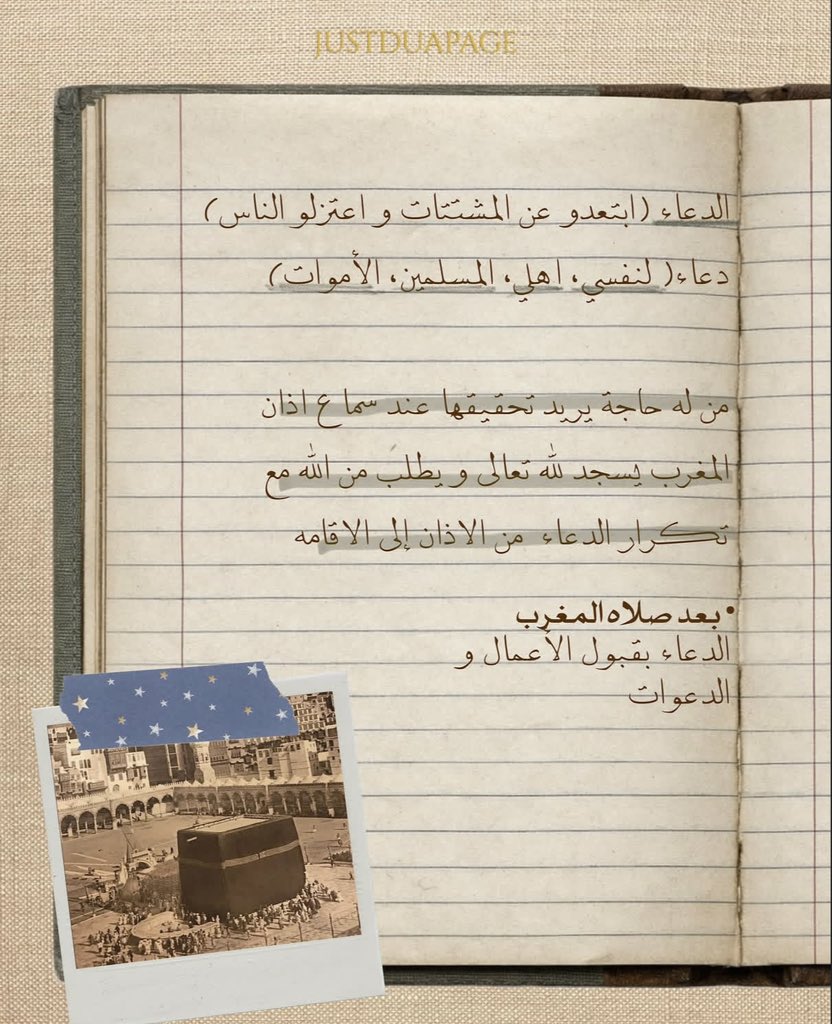 JUSTDUAPAGE
الدعاء (ابتعدو عن المشتتات و اعتزلو الناس)
دعاء( لنفسي، اهلي، المسلمين، الأموات)
من له حاجة يريد تحقيقها عند سماع اذان
المغرب يسجد لله تعالى و يطلب من الله مع
تكرار الدعاء من الاذان إلى الاقامه
•بعد صلاه المغرب
الدعاء بقبول الأعمال و
الدعوات